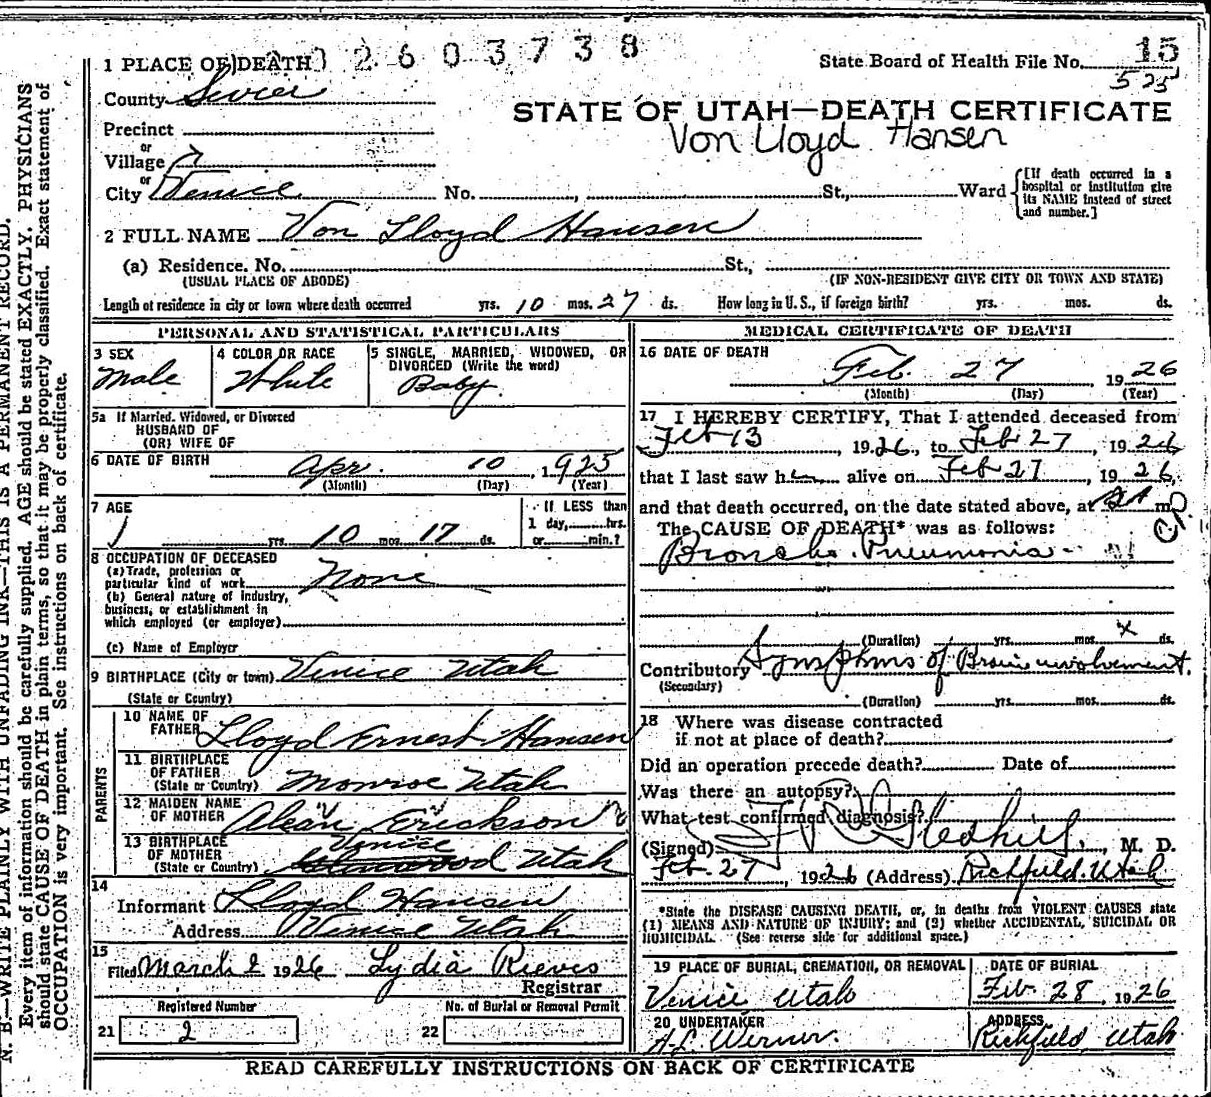 2603738
1 PLACE OF DEATH
State Board of Health File No. 15
525
County Sevier
STATE OF UTAH—DEATH CERTIFICATE
Precinct
Von Lloyd Hansen
or
Village
or
City Venice No. , St., Ward
[If death occurred in a
hospital or institution give
its NAME instead of street
and number.]
2 FULL NAME Von Lloyd Hansen
(a) Residence. No. St.,
(USUAL PLACE OF ABODE) (IF NON-RESIDENT GIVE CITY OR TOWN AND STATE)
Length of residence in city or town where death occurred yrs. 10 mos. 27 ds. How long in U. S., if foreign birth? yrs. mos. ds.
PERSONAL AND STATISTICAL PARTICULARS
3 SEX
Male
4 COLOR OR RACE
White
5 SINGLE, MARRIED, WIDOWED, OR
DIVORCED (Write the word)
Baby
5a If Married, Widowed, or Divorced
HUSBAND OF
(OR) WIFE OF
6 DATE OF BIRTH Apr. 10, 1925
(Month) (Day) (Year)
7 AGE
1 yrs. 10 mos. 17 ds.
If LESS than
1 day, hrs.
or min.?
8 OCCUPATION OF DECEASED
(a) Trade, profession or
particular kind of work None
(b) General nature of industry,
business, or establishment in
which employed (or employer)
(c) Name of Employer
9 BIRTHPLACE (City or town) Venice Utah
(State or Country)
PARENTS
10 NAME OF
FATHER Lloyd Ernest Hansen
11 BIRTHPLACE
OF FATHER
(State or Country) Monroe Utah
12 MAIDEN NAME
OF MOTHER Alean Erickson
13 BIRTHPLACE
OF MOTHER
(State or Country) Venice Utah
14
Informant Lloyd Hansen
Address Venice Utah
15
Filed March 2 1926 Lydia Reeves
Registrar
Registered Number
21 2
No. of Burial or Removal Permit
22
MEDICAL CERTIFICATE OF DEATH
16 DATE OF DEATH
Feb. 27 1926
(Month) (Day) (Year)
17 I HEREBY CERTIFY, That I attended deceased from
Feb 13, 1926, to Feb 27, 1926
that I last saw h alive on Feb 27, 1926,
and that death occurred, on the date stated above, at m
The CAUSE OF DEATH* was as follows:
Broncho. Pneumonia
(Duration) yrs. mos. x ds.
Contributory Symptoms of Brain involvement.
(Secondary)
(Duration) yrs. mos. ds.
18 Where was disease contracted
if not at place of death?
Did an operation precede death? Date of
Was there an autopsy?
What test confirmed diagnosis?
(Signed) Gledhill, M. D.
Feb. 27, 1926 (Address) Richfield. Utah
*State the DISEASE CAUSING DEATH, or, in deaths from VIOLENT CAUSES state
(1) MEANS AND NATURE OF INJURY; and (2) whether ACCIDENTAL, SUICIDAL OR
HOMICIDAL. (See reverse side for additional space.)
19 PLACE OF BURIAL, CREMATION, OR REMOVAL
Venice Utah
DATE OF BURIAL
Feb. 28, 1926
20 UNDERTAKER
A. L. Werner.
ADDRESS
Richfield, Utah
READ CAREFULLY INSTRUCTIONS ON BACK OF CERTIFICATE
N. B.—WRITE PLAINLY WITH UNFADING INK—THIS IS A PERMANENT RECORD.
Every item of information should be carefully supplied. AGE should be stated EXACTLY. PHYSICIANS
should state CAUSE OF DEATH in plain terms, so that it may be properly classified. Exact statement of
OCCUPATION is very important. See instructions on back of certificate.